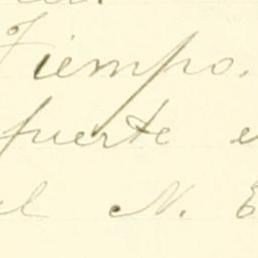 Tiempo.
fuerte e
el N. E